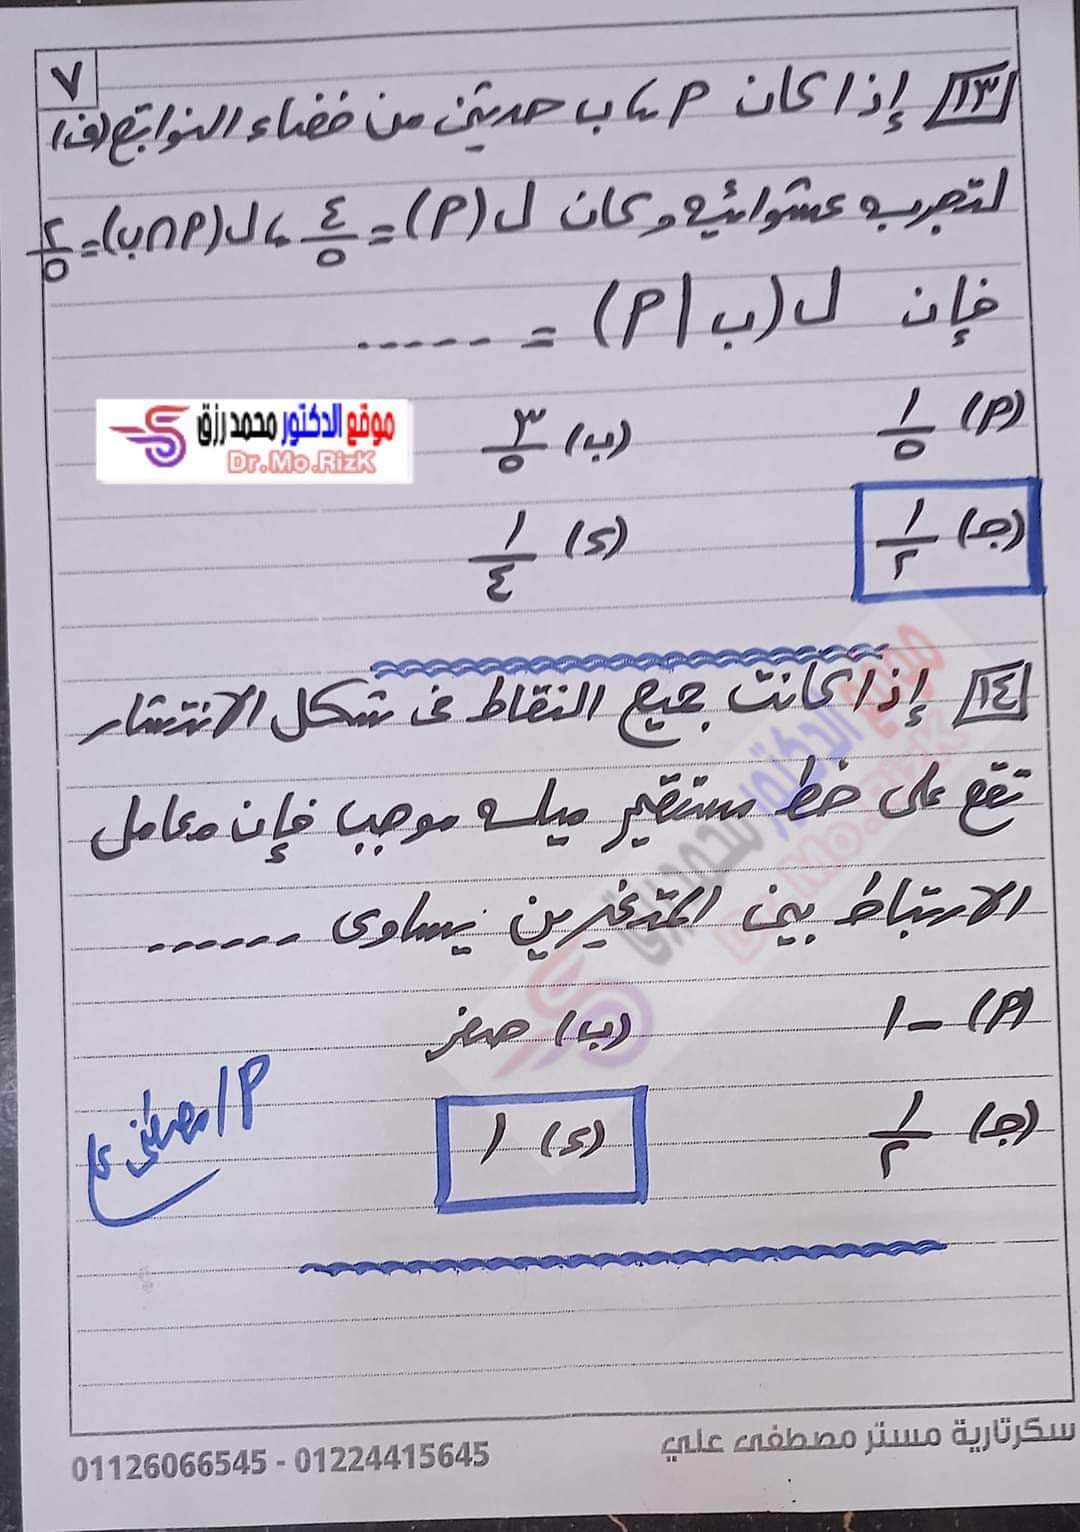 ٧
١٣ إذا كان م ، ب حدثين من فضاء النواتج (ف)
لتجربه عشوائيه وكان ل (م) = ٤/٥ ، ل (م ∩ ب) = ٢/٥
فإن ل (ب | م) = -----
(م) ١/٥ (ب) ٣/٥
موقع الدكتور محمد رزق
Dr.Mo.RizK
(جـ) ١/٢ (د) ١/٤
١٤ إذا كانت جميع النقاط فى شكل الانتشار
تقع على خط مستقيم ميله موجب فإن معامل
الارتباط بين المتغيرين يساوى ------
(م) -١ (ب) صفر
(جـ) ١/٢ (د) ١
م/ مصطفى على
موقع الدكتور محمد رزق
Dr.Mo.RizK
سكرتارية مستر مصطفى علي
01126066545 - 01224415645